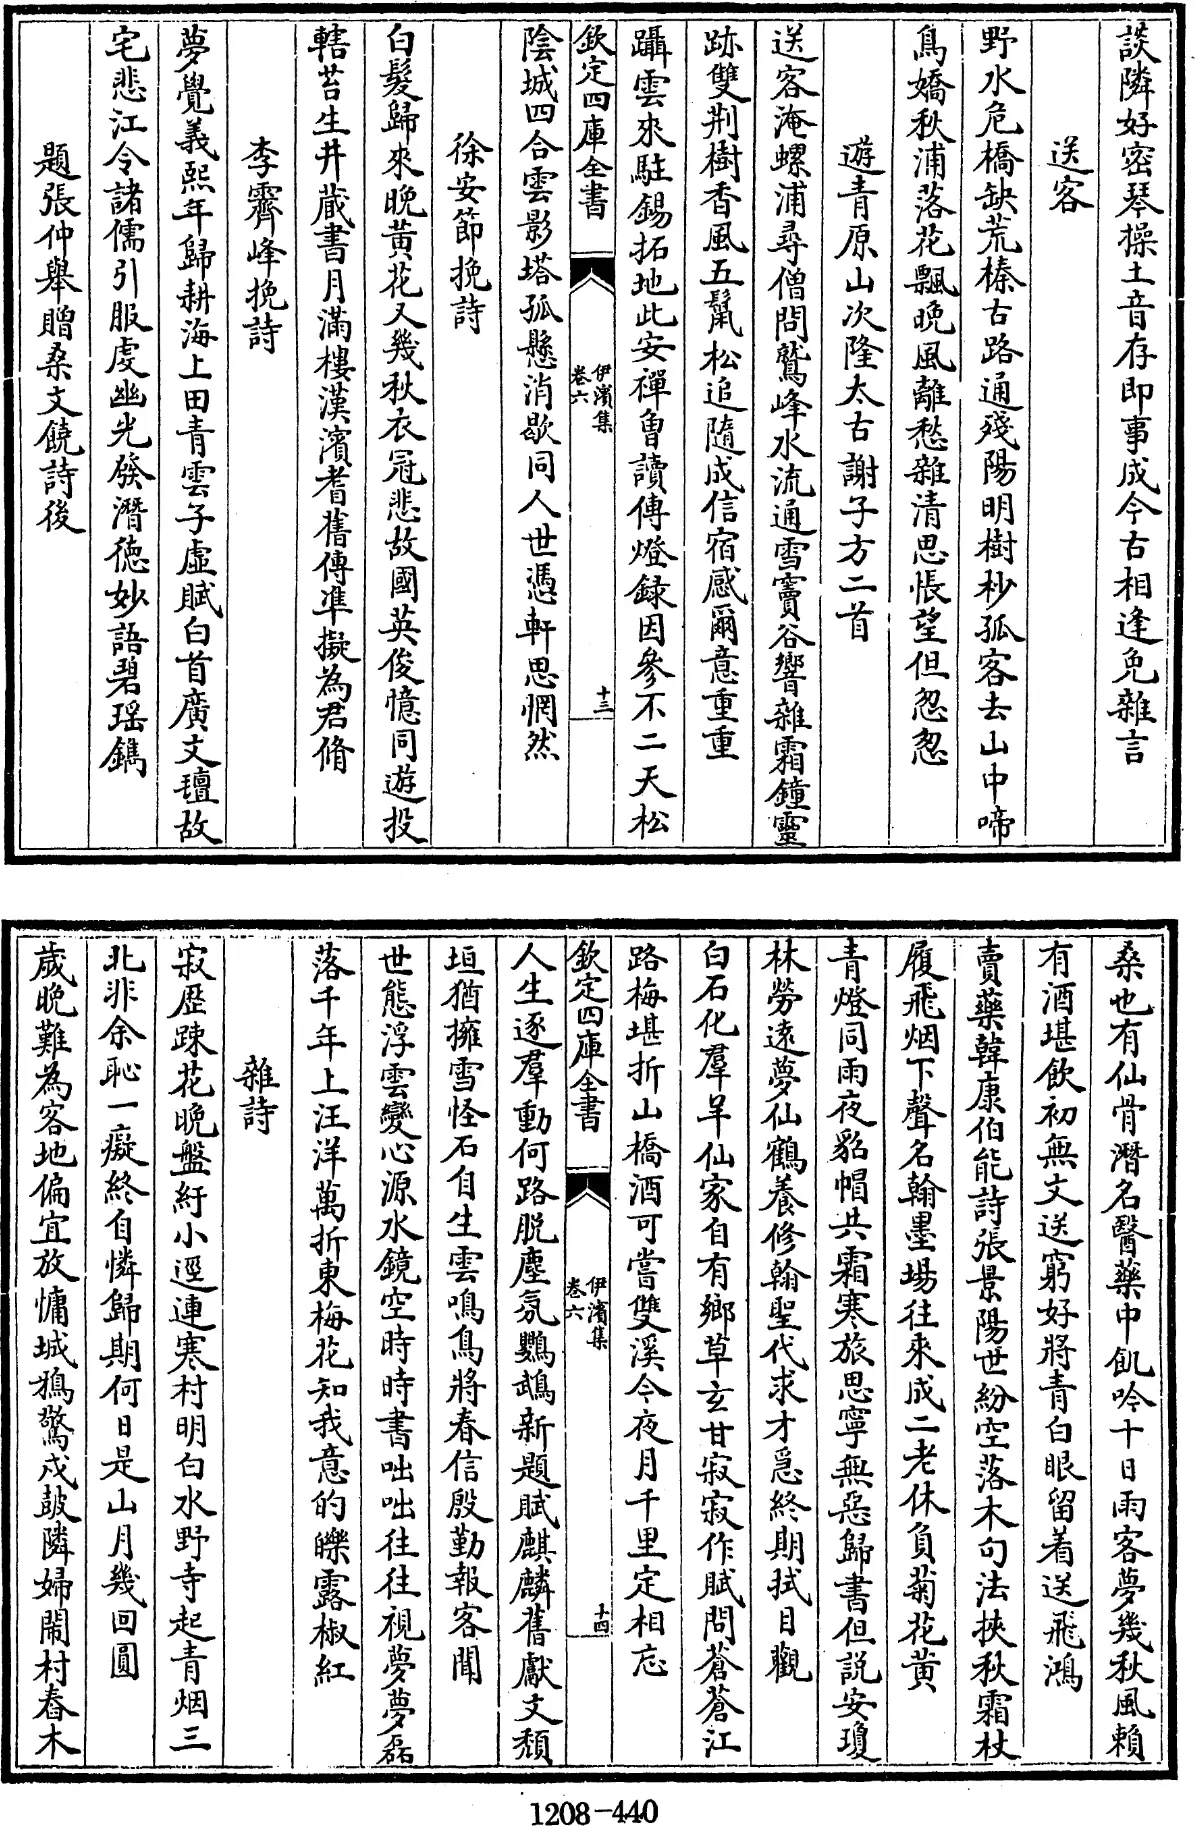 談隣好密琴操土音存即事成今古相逢免雜言
送客
野水危橋缺荒榛古路通殘陽明樹杪孤客去山中啼
鳥嬌秋浦落花飄晚風離愁雜清思悵望但怱怱
遊青原山次隆太古謝子方二首
送客淹螺浦尋僧問鷲峰水流通雪竇谷響雜霜鐘靈
跡雙荆樹香風五鬛松追隨成信宿感爾意重重
躡雲來駐錫拓地此安禪曽讀傳燈録因參不二天松
欽定四庫全書
伊濱集
卷六
十三
陰城四合雲影塔孤懸消歇同人世憑軒思惘然
徐安節挽詩
白髮歸來晚黄花又幾秋衣冠悲故國英俊憶同遊投
轄苔生井蔵書月滿樓漢濱耆舊傳凖擬為君脩
李霽峰挽詩
夢覺義熙年歸耕海上田青雲子虚賦白首廣文氊故
宅悲江令諸儒引服䖍幽光發潛徳妙語碧瑶鐫
題張仲舉贈桑文饒詩後
桑也有仙骨潛名醫藥中飢吟十日雨客夢幾秋風賴
有酒堪飲初無文送窮好將青白眼留着送飛鴻
賣藥韓康伯能詩張景陽世紛空落木句法挾秋霜杖
履飛烟下聲名翰墨場往來成二老休負菊花黄
青燈同雨夜貂帽共霜寒旅思寧無惡歸書但説安瓊
林勞遠夢仙鶴養修翰聖代求才急終期拭目觀
白石化羣羊仙家自有鄉草玄甘寂寂作賦問蒼蒼江
路梅堪折山橋酒可嘗雙溪今夜月千里定相忘
欽定四庫全書
伊濱集
卷六
十四
人生逐羣動何路脱塵氛鸚鵡新題賦麒麟舊獻文頽
垣猶擁雪怪石自生雲鳴鳥將春信殷勤報客聞
世態浮雲變心源水鏡空時時書咄咄往往視夢夢磊
落千年上汪洋萬折東梅花知我意的皪露椒紅
雜詩
寂歴踈花晚盤紆小逕連寒村明白水野寺起青烟三
北非余恥一癡終自憐歸期何日是山月幾回圓
歲晚難為客地偏宜放慵城鴉驚戍鼓隣婦閙村舂木
1208-440